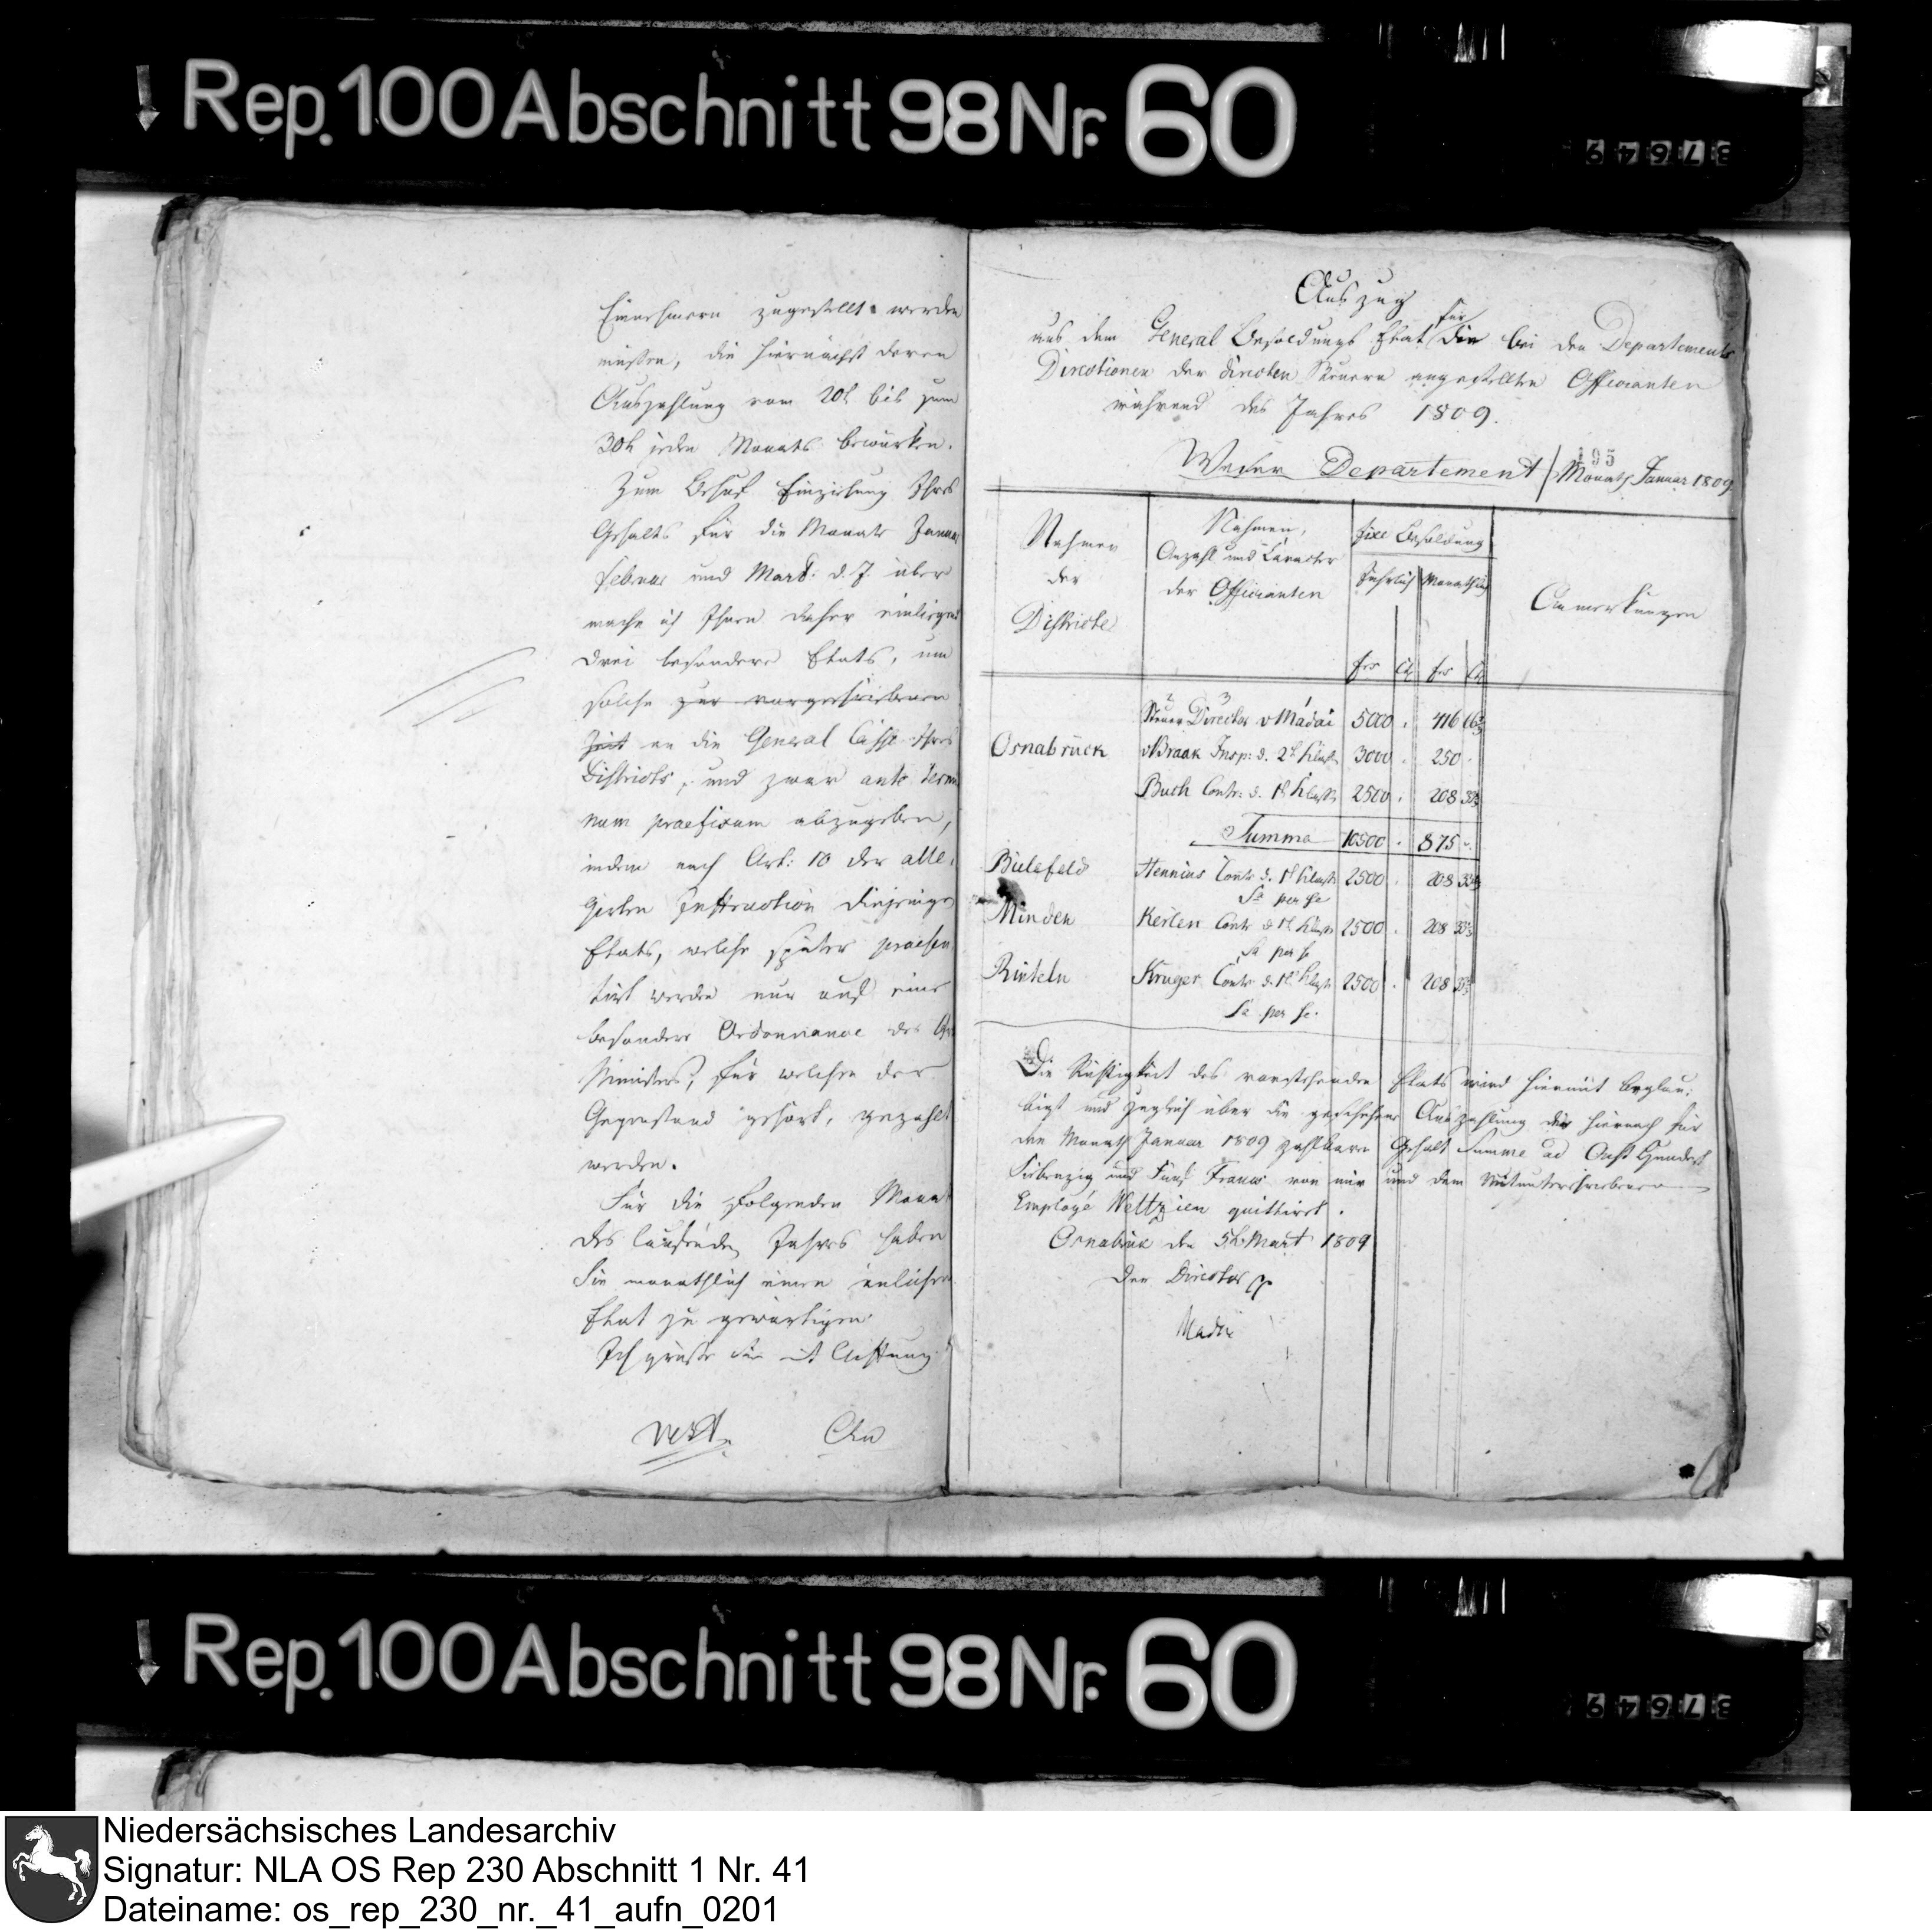 Rep. 100 Abschnitt 98 Nr. 60
37649
Einnehmern zugestellt werden
müssen, die hiernächst deren
Auszahlung vom 20t bis zum
30t jeden Monats bewürken.
Zum Behuf Einziehung Ihres
Gehalts für die Monate Januar
Februar und Mart: d. J. über
mache ich Ihnen daher einliegend
drei besondere Etats, um
solche zur vorgeschriebenen
Zeit an die General Casse Ihres
Districts, und zwar ante termi
num praefixum abzugeben,
indem nach Art: 10 der alle,
girten Instruction diejenigen
Etats, welche später praesen
tirt werden nur auf eine
besondere Ordonnance des
Ministers, für welchen der
Gegenstand gehört, gezahlt
werden.
Für die folgenden Monat
des laufenden Jahres haben
Sie monathlich einen änlichen
Etat zu gewärtigen.
Ich grüße Sie mit Achtung
An
Auszug
aus dem General Besoldungs Etat für die bei den Departements
Directionen der directen Steuern angestellten Officianten
während des Jahres 1809.
195
Weser Departement / Monath Januar 1809
Nahmen
der
Districte
Nahmen,
Anzahl und Caracter
der Officianten
fixe Besoldung
Jährlich Monathlich
frs Ct frs Ct
Anmerkungen
Steuer Director v Madai 5000 . 416 66⅔
Osnabrück v Braak Insp: d. 2t Klasse 3000 . 250 .
Buch Contr: d. 1t Klasse 2500 . 208 33⅓
Summa 10500 . 875 .
Bielefeld Hennius Contr d. 1t Klasse 2500 . 208 33⅓
Sa per se
Minden Kerlen Contr d 1t Klasse 2500 . 208 33⅓
Sa per se
Rinteln Kruger Contr d. 1t Klasse 2500 . 208 33⅓
Sa per se.
Die Richtigkeit des vorstehenden Etats wird hiermit beglau,
bigt und zugleich über die geschehene Auszahlung der hiernach für
den Monath Januar 1809 zahlbaren Gehalt Summe ad Acht Hundert
Siebenzig und Fünf Francs von mir und dem Mitunterschriebenen
Employé Weltzien quittiret.
Osnabrück den 5t Mart 1809
Der Director
Madai
Rep. 100 Abschnitt 98 Nr. 60
37649
Niedersächsisches Landesarchiv
Signatur: NLA OS Rep 230 Abschnitt 1 Nr. 41
Dateiname: os_rep_230_nr._41_aufn_0201